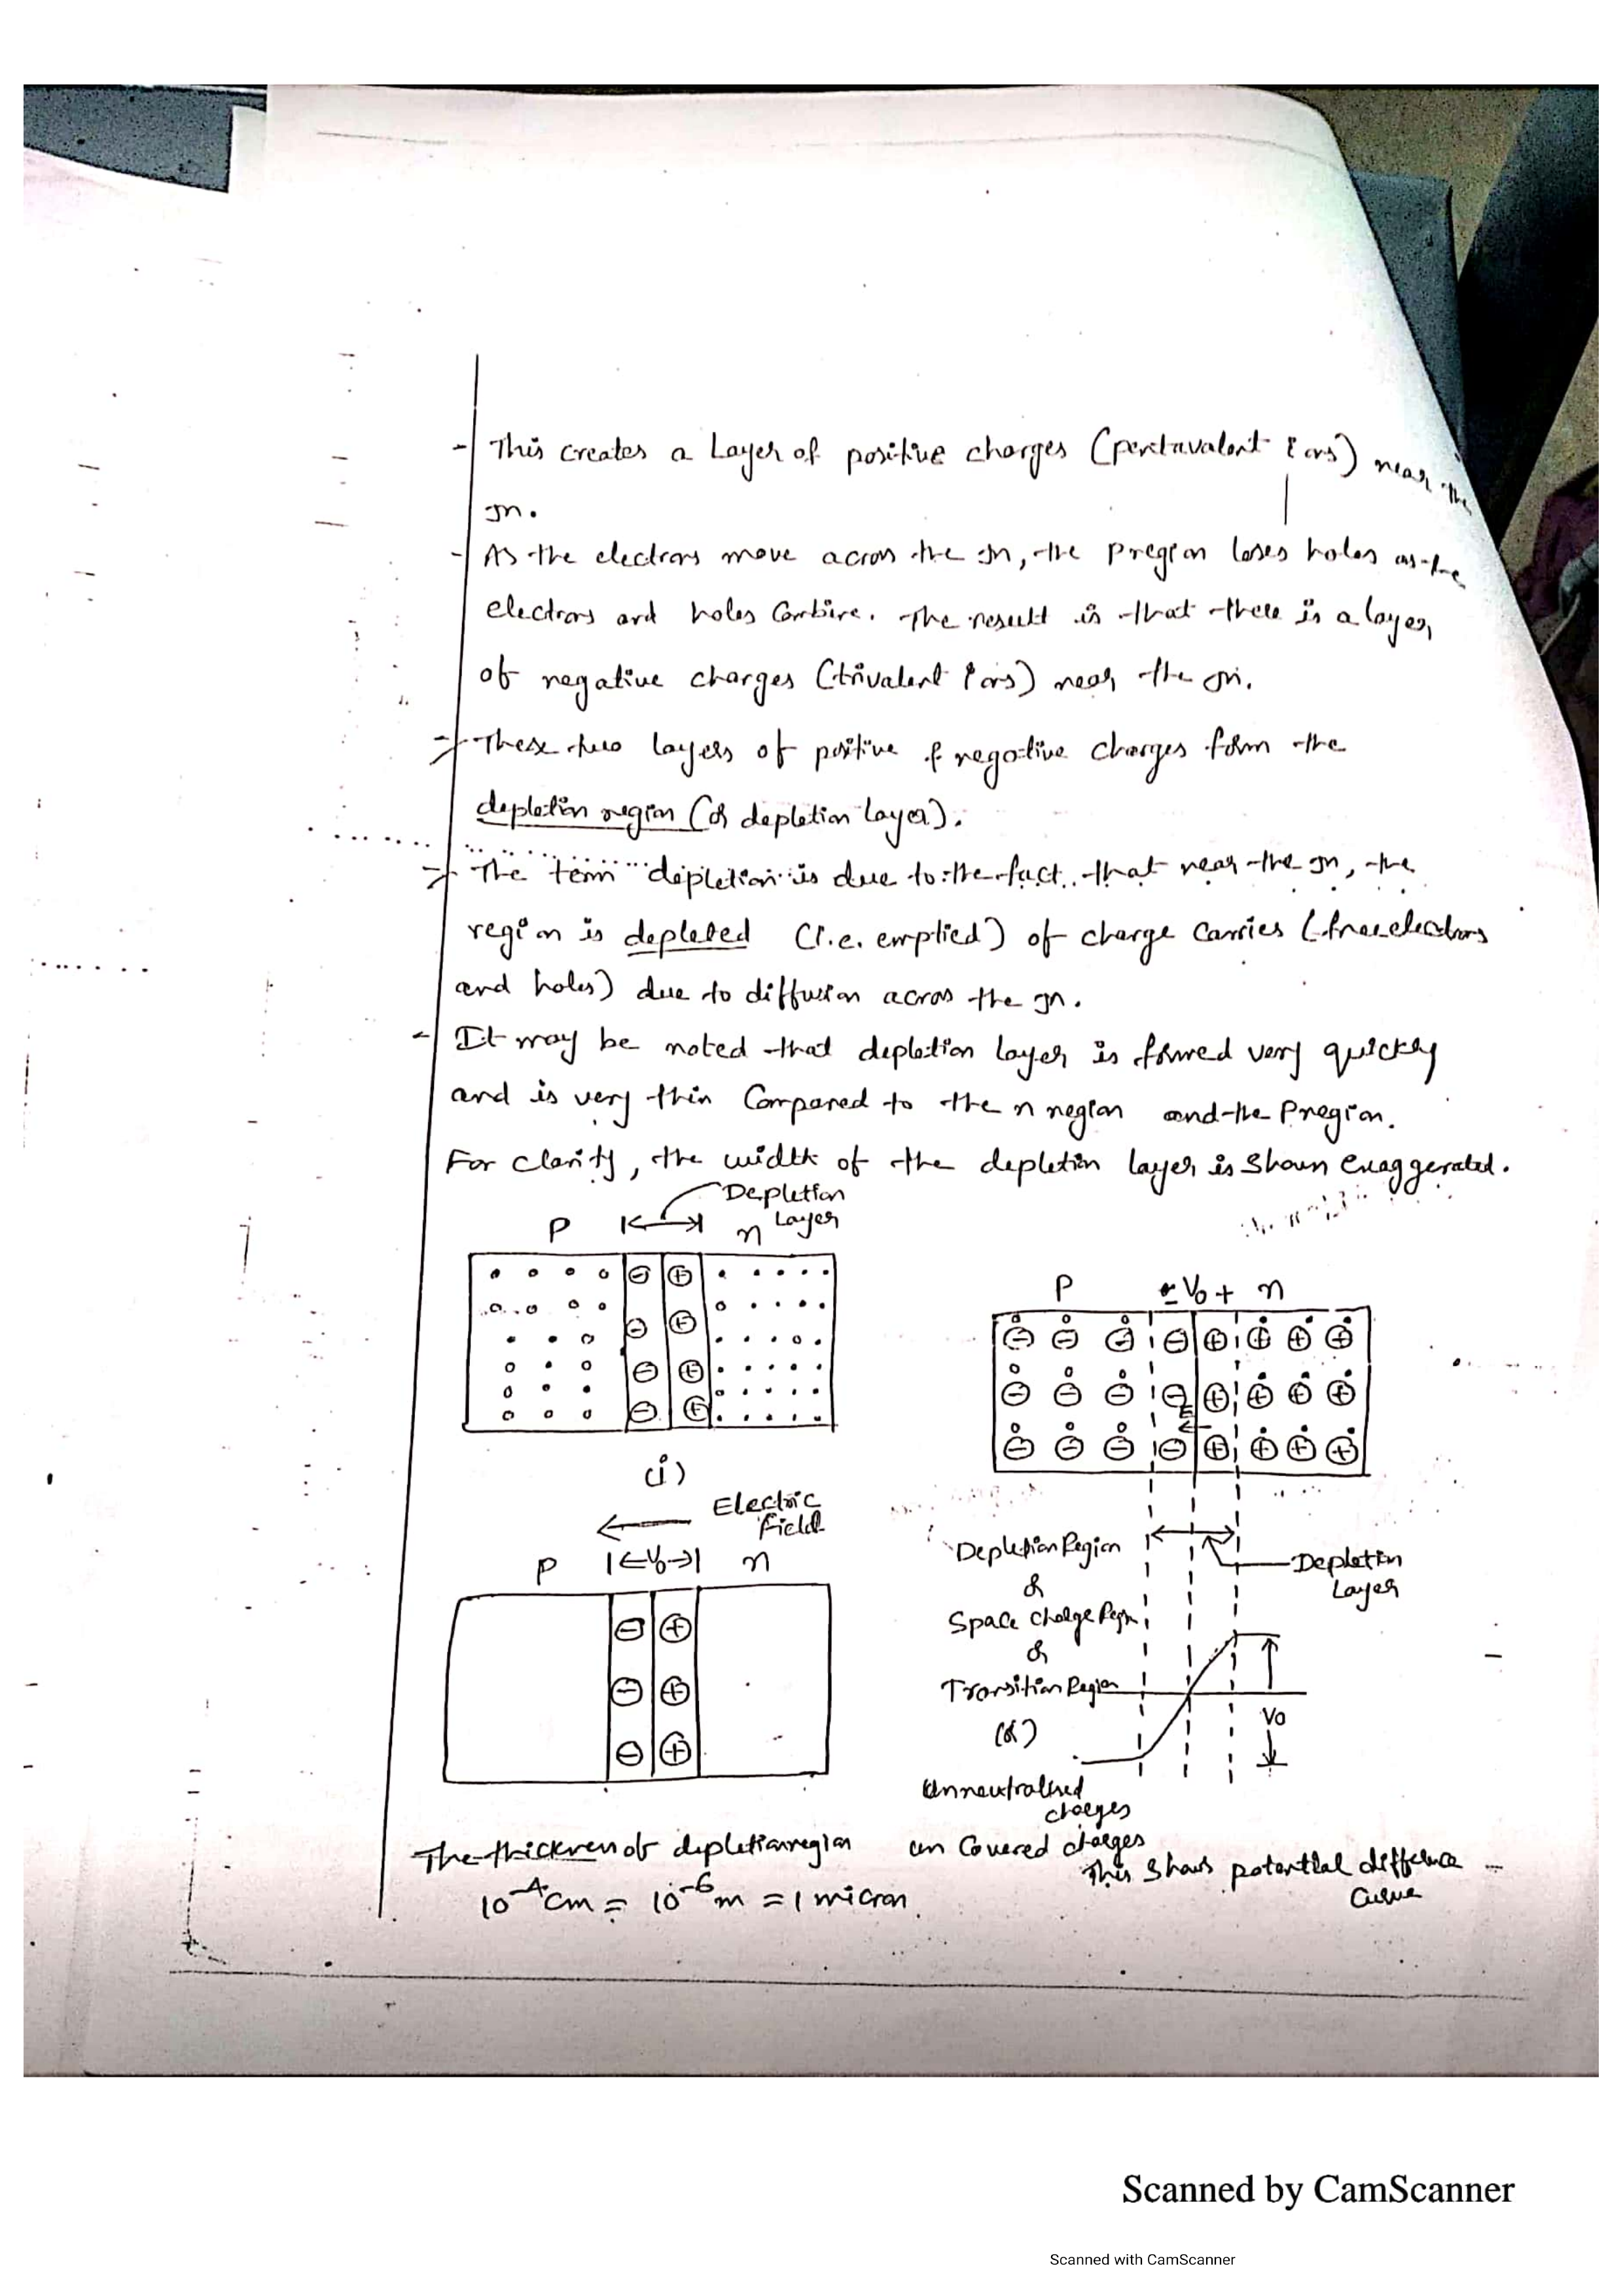 - This creates a Layer of positive charges (pentavalent ions) near the
Jn.
- As the electrons move across the Jn, the p region loses holes as the
electrons and holes Combine. The result is that there is a layer
of negative charges (trivalent ions) near the Jn.
-> These two layers of positive & negative charges form the
depletion region (or depletion layer).
-> The term depletion is due to the fact that near the Jn, the
region is depleted (i.e. emptied) of charge carries (free electrons
and holes) due to diffusion across the Jn.
- It may be noted that depletion layer is formed very quickly
and is very thin Compared to the n region and the P region.
For Clarity, the width of the depletion layer is shown exaggerated.
Depletion
Layer
P n
(i)
P - V0 + n
E
Electric
field
P V0 n
Depletion Region
or
Space Charge Regn
or
Transition Region
(or)
Unneutralised
charges
un Covered charges
Depletion
Layer
V0
This shows potential difference
Curve
The thickness of depletion region
10⁻⁴ cm = 10⁻⁶ m = 1 micron.
Scanned by CamScanner
Scanned with CamScanner